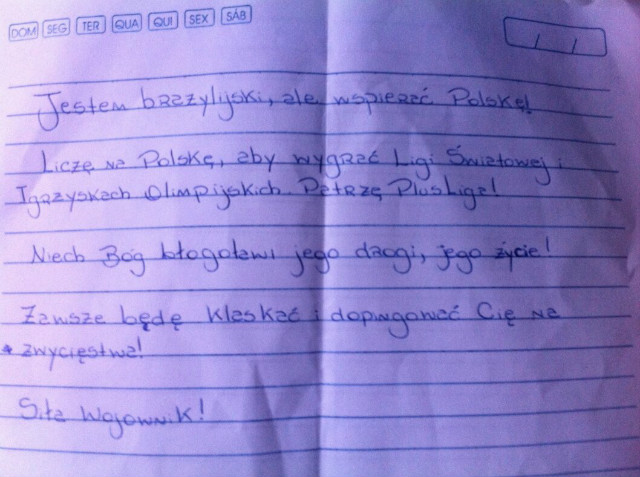 DOM SEG TER QUA QUI SEX SÁB
/ /
Jestem brazylijski, ale wspierać Polskę!
Liczę na Polskę, aby wygrać Ligi Światowej i
Igrzyskach Olimpijskich. Patrzę PlusLiga!
Niech Bóg błogoławi jego drogi, jego życie!
Zawsze będę klaskać i dopingować Cię na
zwycięstwa!
Siła Wojownik!